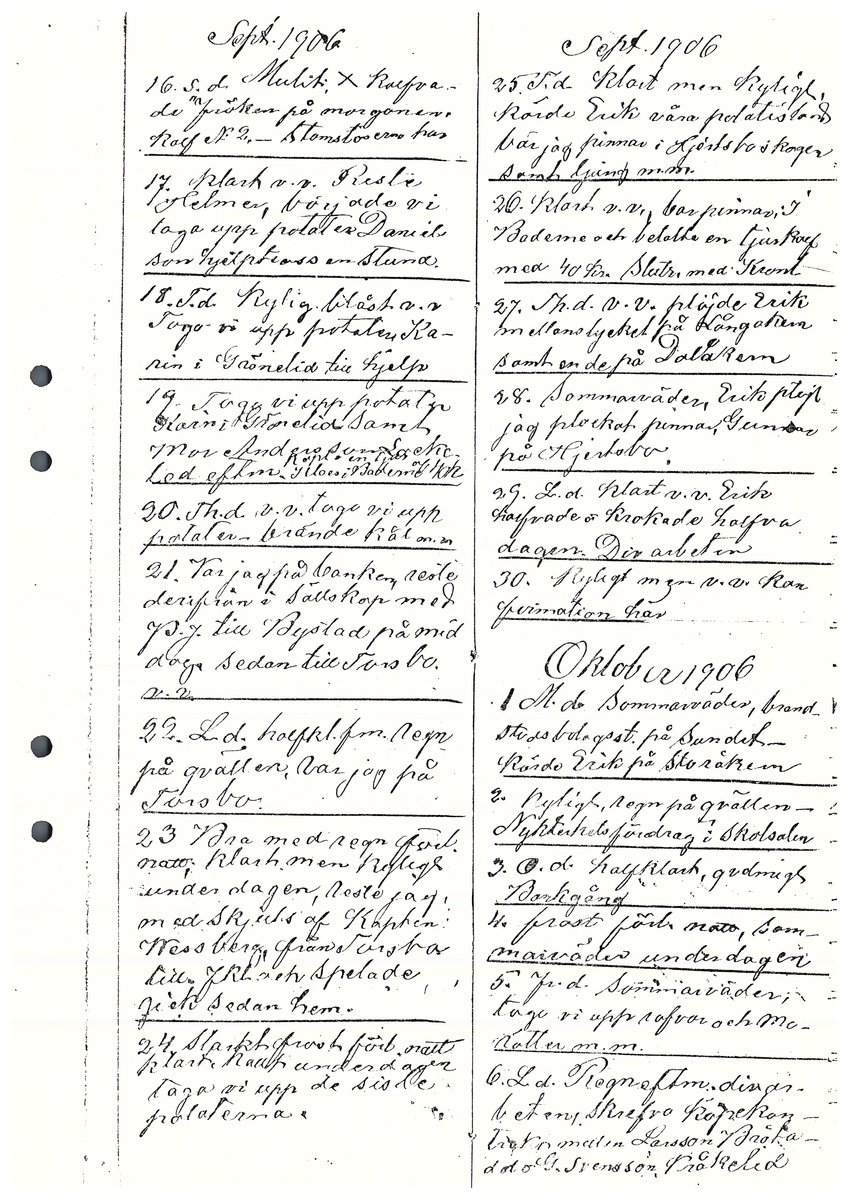 Sept. 1906
16. S.d. Mulit, × Kalfva-
de "fröken på morgonen.
Kalf No 2. — Stamstöserna har
17. Klart v.v. Reste
Helmer, började vi
taga upp potater Daniel-
son hjelpte oss en stund.
18. T.d. Kylig blåst v.v
Togo vi upp potater, Ka-
rin i Grönelid till hjelp
19. Togo vi upp potater
Karin i Grönelid samt
Mor Andersson
led eftm. Klaes i Boderne
20. Th.d. v.v. togo vi upp
potater - brände kål m.m
21. Var jag på banken, reste
derifrån i sällskap med
P.J. till Bystad på mid
dag. Sedan till Torsbo.
v.v.
22. L.d. halfkl. fm. regn
på qvällen, Var jag på
Torsbo.
23 Bra med regn förl.
natt, klart men kyligt
under dagen, reste jag,
med skjuts af Kapten
Wessberg, från Torsbo
till och spelade,
gick sedan hem.
24 Starkt frost förl. natt
klart kallt under dagen
toga vi upp de siste
potaterna.
Sept. 1906
25. T.d. Klart men kyligt,
körde Erik våra potatisland
bär jag pinnar i Hjertsboskogen
samt ljung m.m.
26. Klart v.v., bar pinnar, I
Boderne och betalte en tjurkalf
med 40 kr. Slutr. med Kront
27. Th.d. v.v. plöjde Erik
mellanstycket på Långåkern
samt ende på Dalåkern
28. Sommarväder, Erik plöjt
jag plockat pinnar, Gunnar
på Hjertsbo.
29. L.d. Klart v.v. Erik
halfvade o krokade halfva
dagen. Div arbeten
30. Kyligt men v.v. Kon
firmation här
Oktober 1906
1 M.d. Sommarväder, brand-
stodsbolagsst. på Sundet —
körde Erik på Storåkern
2. Kyligt, regn på qvällen —
Nykterhetsfördrag i Skolsalen
3. O.d. halfklart, gvdmigt
Bankgång
4. frost förl. natt, som-
marväder under dagen
5. Fr.d. Sommarväder,
togo vi upp rofvor och Mo-
rötter m.m.
6. L.d. Regn eftm. div ar-
beten, skrefva Köpekon-
trakt mellan Larsson Bråta-
d o G. Svensson, Kråkelid